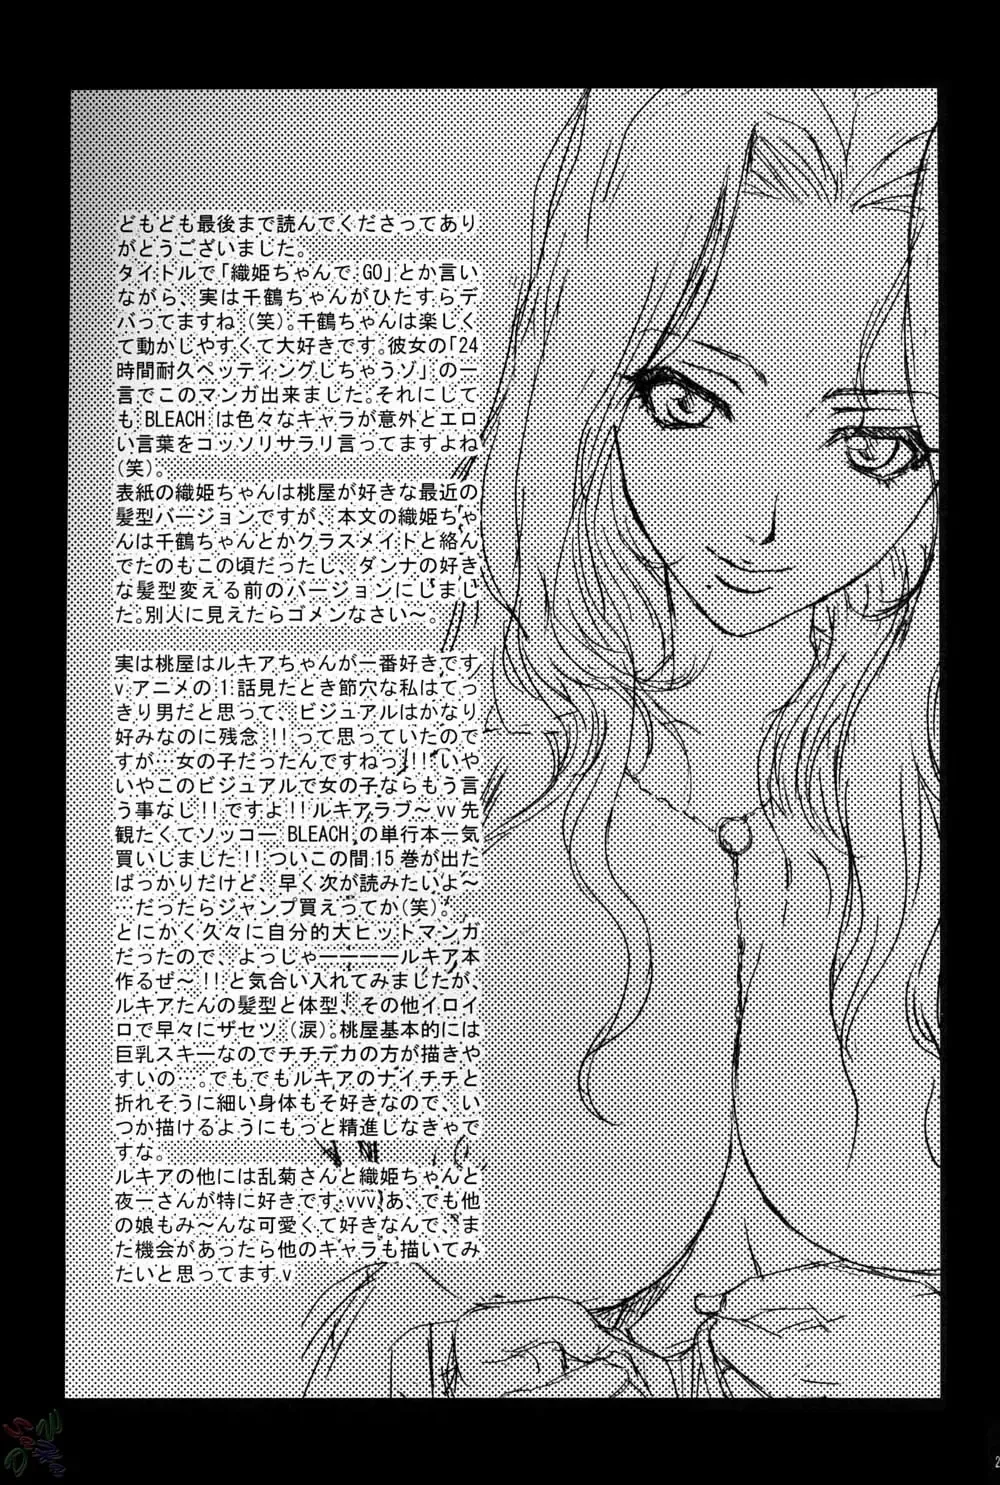 どもども最後まで読んでくださってあり
がとうございました。
タイトルで「織姫ちゃんで GO」とか言い
ながら、実は千鶴ちゃんがひたすらデ
バってますね (笑)。千鶴ちゃんは楽しく
て動かしやすくて大好きです。彼女の「24
時間耐久ペッティングしちゃうゾ」の一
言でこのマンガ出来ました。それにして
も BLEACH は色々なキャラが意外とエロ
い言葉をコッソリサラリ言ってますよね
(笑)。
表紙の織姫ちゃんは桃屋が好きな最近の
髪型バージョンですが、本文の織姫ちゃ
んは千鶴ちゃんとかクラスメイトと絡ん
でたのもこの頃だったし、ダンナの好き
な髪型変える前のバージョンにしまし
た。別人に見えたらゴメンなさい～。
実は桃屋はルキアちゃんが一番好きです
v アニメの 1 話見たとき節穴な私はてっ
きり男だと思って、ビジュアルはかなり
好みなのに残念 !! って思っていたので
すが…女の子だったんですねっ!! いや
いやこのビジュアルで女の子ならもう言
う事なし!! ですよ!! ルキアラブ～ vv 先
観たくてソッコー BLEACH の単行本一気
買いしました!! ついこの間 15 巻が出た
ばっかりだけど、早く次が読みたいよ～
…だったらジャンプ買えってか(笑)。
とにかく久々に自分的大ヒットマンガ
だったので、よっしゃーーーールキア本
作るぜ～!! と気合い入れてみましたが、
ルキアたんの髪型と体型、その他イロイ
ロで早々にザセツ (涙)。桃屋基本的には
巨乳スキーなのでチチデカの方が描きや
すいの…。でもでもルキアのナイチチと
折れそうに細い身体もそ好きなので、い
つか描けるようにもっと精進しなきゃで
すな。
ルキアの他には乱菊さんと織姫ちゃんと
夜一さんが特に好きです vvv あ、でも他
の娘もみ～んな可愛くて好きなんで、ま
た機会があったら他のキャラも描いてみ
たいと思ってます v
2